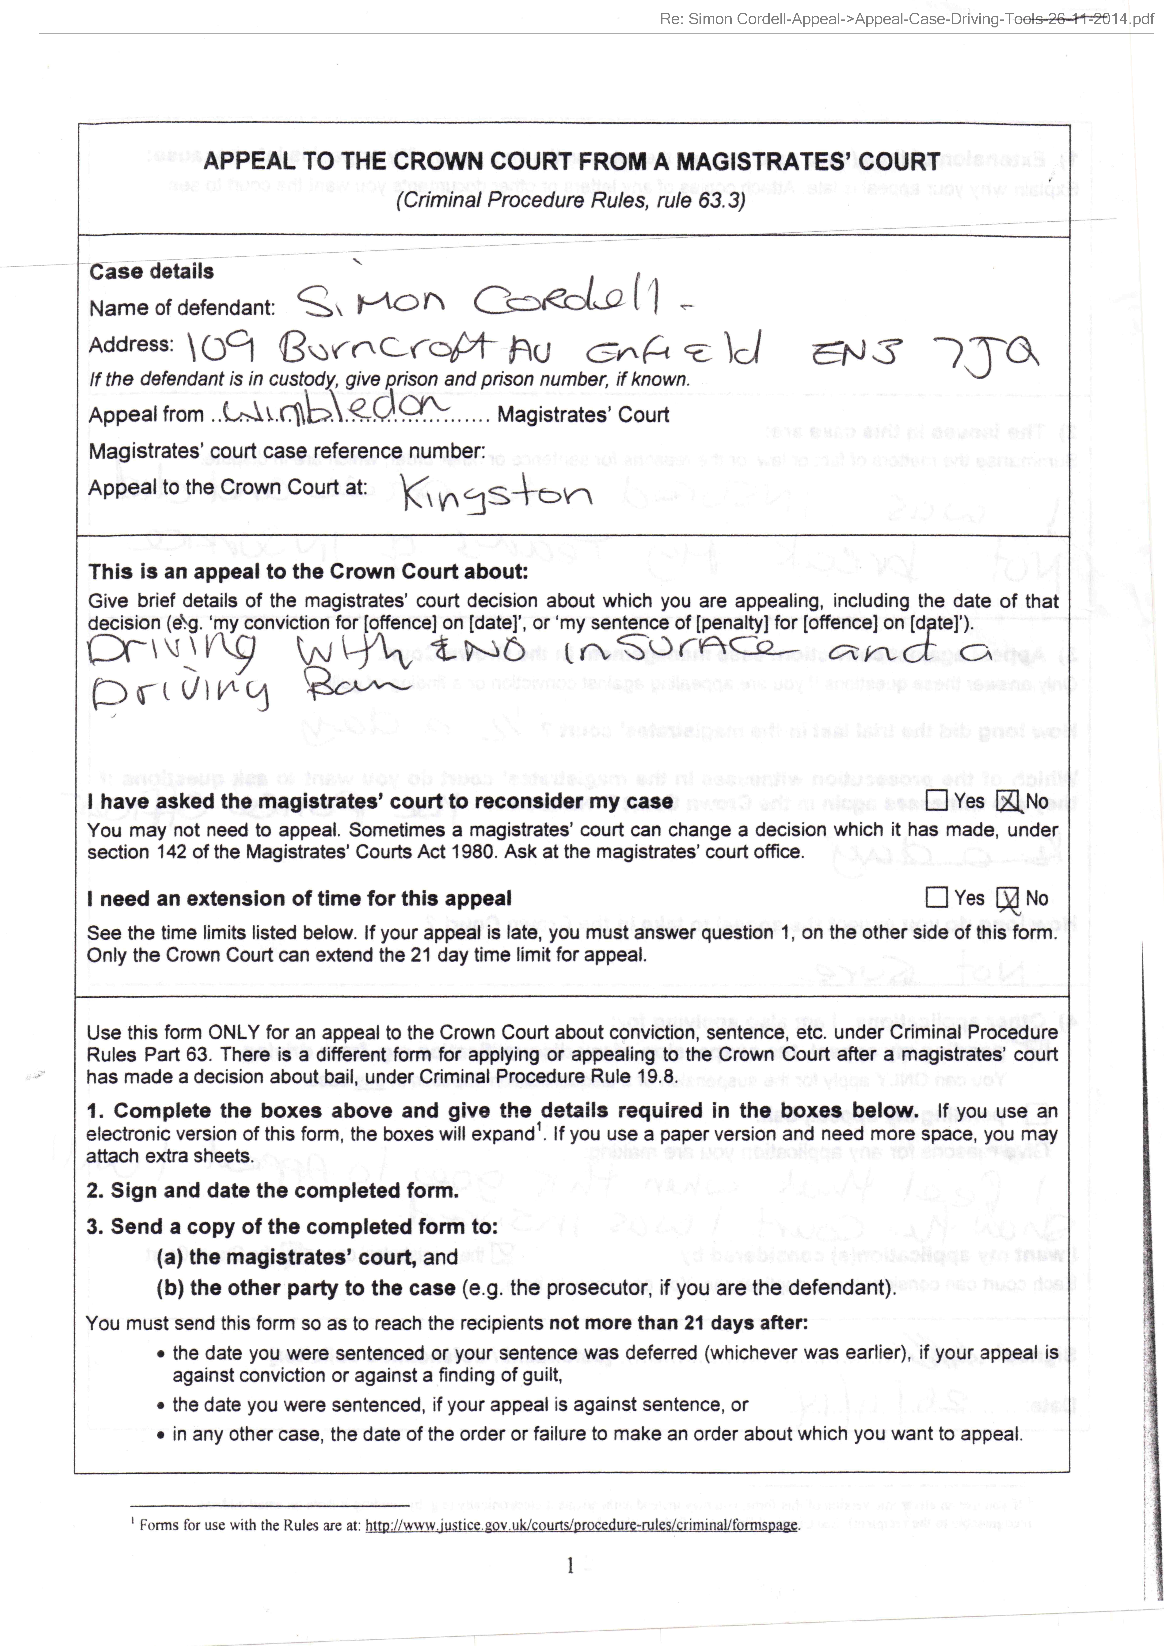 Re: Simon Cordell-Appeal->Appeal-Case-Driving-Tools-26-11-2014.pdf
APPEAL TO THE CROWN COURT FROM A MAGISTRATES' COURT
(Criminal Procedure Rules, rule 63.3)
Case details
Name of defendant: Simon Cordell -
Address: 109 Burncroft AV Enfield EN3 7JQ
If the defendant is in custody, give prison and prison number, if known.
Appeal from ..Wimbledon...... Magistrates' Court
Magistrates' court case reference number:
Appeal to the Crown Court at: Kingston
This is an appeal to the Crown Court about:
Give brief details of the magistrates' court decision about which you are appealing, including the date of that
decision (e.g. 'my conviction for [offence] on [date]', or 'my sentence of [penalty] for [offence] on [date]').
Driving insurace and a
Driving Ban
I have asked the magistrates' court to reconsider my case Yes No
You may not need to appeal. Sometimes a magistrates' court can change a decision which it has made, under
section 142 of the Magistrates' Courts Act 1980. Ask at the magistrates' court office.
I need an extension of time for this appeal Yes No
See the time limits listed below. If your appeal is late, you must answer question 1, on the other side of this form.
Only the Crown Court can extend the 21 day time limit for appeal.
Use this form ONLY for an appeal to the Crown Court about conviction, sentence, etc. under Criminal Procedure
Rules Part 63. There is a different form for applying or appealing to the Crown Court after a magistrates' court
has made a decision about bail, under Criminal Procedure Rule 19.8.
1. Complete the boxes above and give the details required in the boxes below. If you use an
electronic version of this form, the boxes will expand¹. If you use a paper version and need more space, you may
attach extra sheets.
2. Sign and date the completed form.
3. Send a copy of the completed form to:
(a) the magistrates' court, and
(b) the other party to the case (e.g. the prosecutor, if you are the defendant).
You must send this form so as to reach the recipients not more than 21 days after:
• the date you were sentenced or your sentence was deferred (whichever was earlier), if your appeal is
against conviction or against a finding of guilt,
• the date you were sentenced, if your appeal is against sentence, or
• in any other case, the date of the order or failure to make an order about which you want to appeal.
¹ Forms for use with the Rules are at: http://www.justice.gov.uk/courts/procedure-rules/criminal/formspage.
1